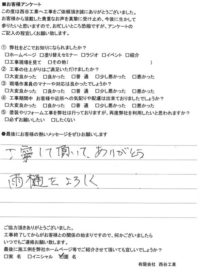 ■お客様アンケート
この度は西谷工業へ工事をご依頼頂き誠にありがとうございました。
お客様から頂戴した貴重なお声を真摯に受け止め、今後に生かして
参りたいと思いますので、お忙しいところ恐縮ですが、アンケートの
ご記入の程宜しくお願い致します。
① 弊社をどこでお知りになられましたか？
□ホームページ □塗り替えセミナー □ラジオ □イベント □紹介
□工事現場を見て □その他( )
② 工事の仕上がりはご満足いただけましたか？
□大変良かった □良かった □普通 □少し悪かった □悪かった
③ 現場作業員のマナーは如何でしたか？
□大変良かった □良かった □普通 □少し悪かった □悪かった
④ 工事期間中 お客様や近所への気配りや配慮は出来ていましたか？
□大変良かった □良かった □普通 □少し悪かった □悪かった
⑤ 塗装やリフォーム工事を行っておりますが、再度弊社を利用したいと思われますか？
□必ずお願いしたい □したくない
●最後にお客様の熱いメッセージをぜひお願いします
丁寧にして頂いて ありがとう
雨樋を よろしく
ご協力ありがとうございました。
工事終了してからがお客様との関係の始まりですので、何かございましたら
いつでもご連絡お願い致します。
最後に弊社のホームページ等でご紹介させて頂いても宜しいでしょうか？
□実名 □イニシャル □匿名
有限会社 西谷工業